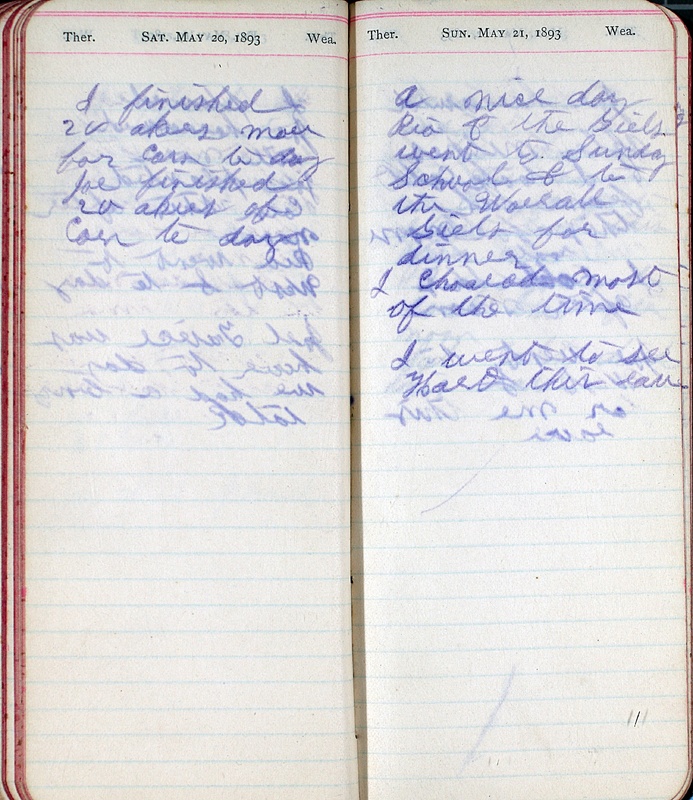 Ther. SAT. MAY 20, 1893 Wea.
I finished
20 akies more
for Corn to day
Joe finished
20 akies of
Corn to day
Ther. SUN. MAY 21, 1893 Wea.
a nice day
Ria & the Biels
went to Sunday
School & to
the
Biels for
dinner
I most
of the time
I went to see
this eave